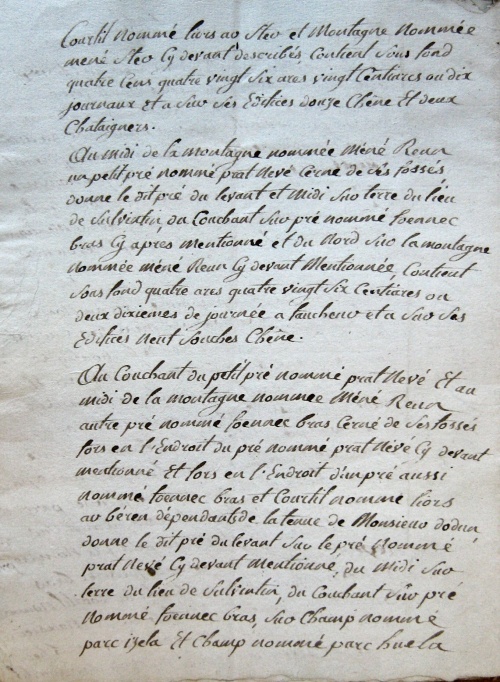 Courtil nommé liors ao Steo et Montagne nommée
méné Steo Cy devant describés, Contient sous fond
quatre Cens quatre vingt Six ares vingt Centiares ou dix
journaux et a Suo Ses Edifices douze Chêne Et deux
Chataigners.
Au Midi de la Montagne nommée Méné Reun
un petit pré nommé prat Nevé Cerné de Ses fossés
donne le dit pré du levant et Midi Suo terre du lieu
de Sulvintin, du Couchant Suo pré nommé foennec
bras Cy après mentionné et du Nord Suo la montagne
nommée méné Reun Cy devant Mentionnée, Contient
Sous fond quatre ares quatre vingt Six Centiares ou
deux dixiemes de journée a faucheuo et a Suo Ses
Edifices neuf Souches Chêne.
Au Couchant du petit pré nommé prat Nevé Et au
midi de la montagne nommee Méné Reun
autre pré nommé foennec bras Cerné de Ses fossés
fors en l'Endroit du pré nommé prat Névé Cy devant
mentionné Et fors en l'Endroit d'un pré aussi
nommé foennec bras et Courtil nomme liors
ao béren dépendants de la tenue de Monsieuo dodun
donne le dit pré du levant Suo le pré Nommé
prat Nevé Cy devant Mentionné, du Midi Suo
terre du lieu de Sulvintin, du Couchant Suo pré
nommé foennec bras, Suo Champ nommé
parc izela Et Champ nommé parc huela